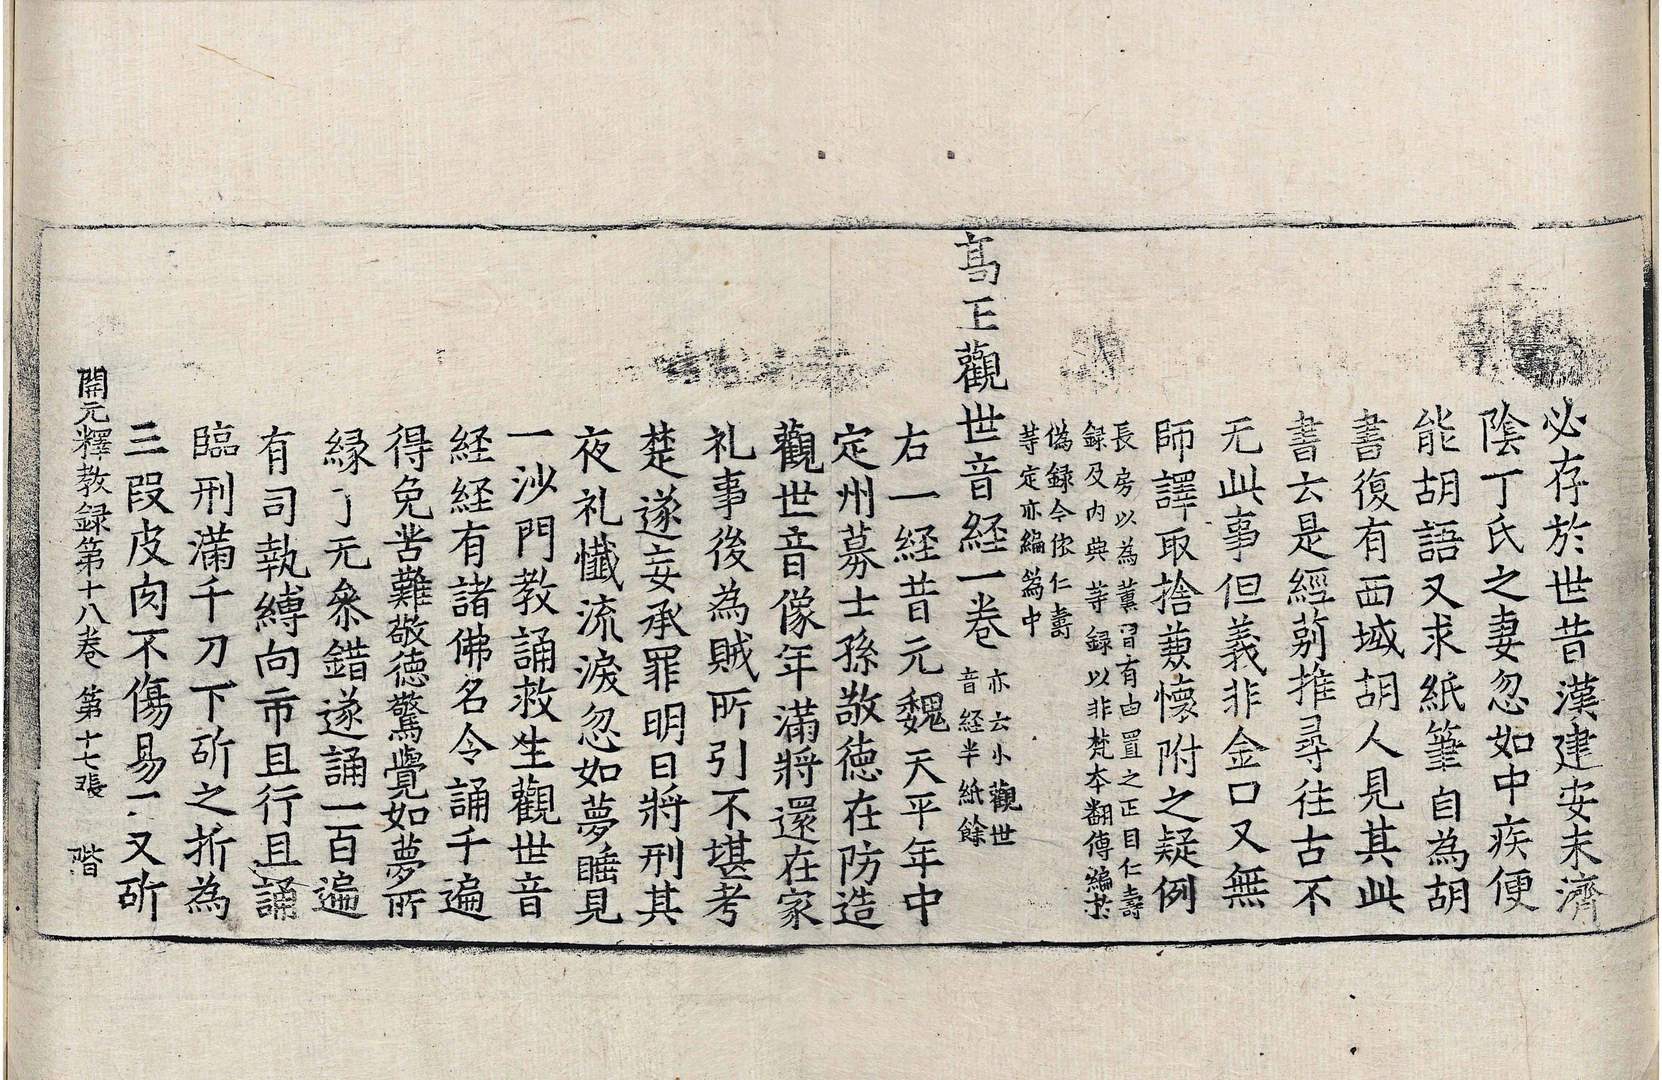 必存於世昔漢建安末濟
陰丁氏之妻忽如中疾便
能胡語又求紙筆自為胡
書復有西域胡人見其此
書云是經莂推尋往古不
无此事但義非金口又無
師譯取捨兼懷附之疑例
長房以為薰習有由置之正目仁壽
録及内典等録以非梵本翻傳編其
偽録今依仁壽
等定亦編偽中
高王觀世音経一卷
亦云小觀世
音経半紙餘
右一経昔元魏天平年中
定州募士孫敬徳在防造
觀世音像年滿將還在家
礼事後為賊所引不堪考
楚遂妄承罪明日將刑其
夜礼懺流淚忽如夢睡見
一沙門教誦救生觀世音
経経有諸佛名令誦千遍
得免苦難敬德驚覺如夢所
縁了无叅錯遂誦一百遍
有司執縛向市且行且誦
臨刑滿千刀下斫之折為
三段皮肉不傷易刀又斫
開元釋教録第十八卷 第十七張 階